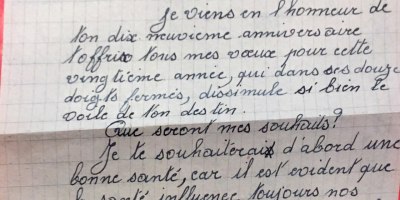 Je viens en l'honneur de
ton dix neuvième anniversaire
t'offrir tous mes vœux pour cette
vingtième année, qui dans ses douze
doigts fermés, dissimule si bien le
voile de ton destin.
Que seront mes souhaits?
Je te souhaiterais d'abord une
bonne santé, car il est évident que
la santé influence toujours nos